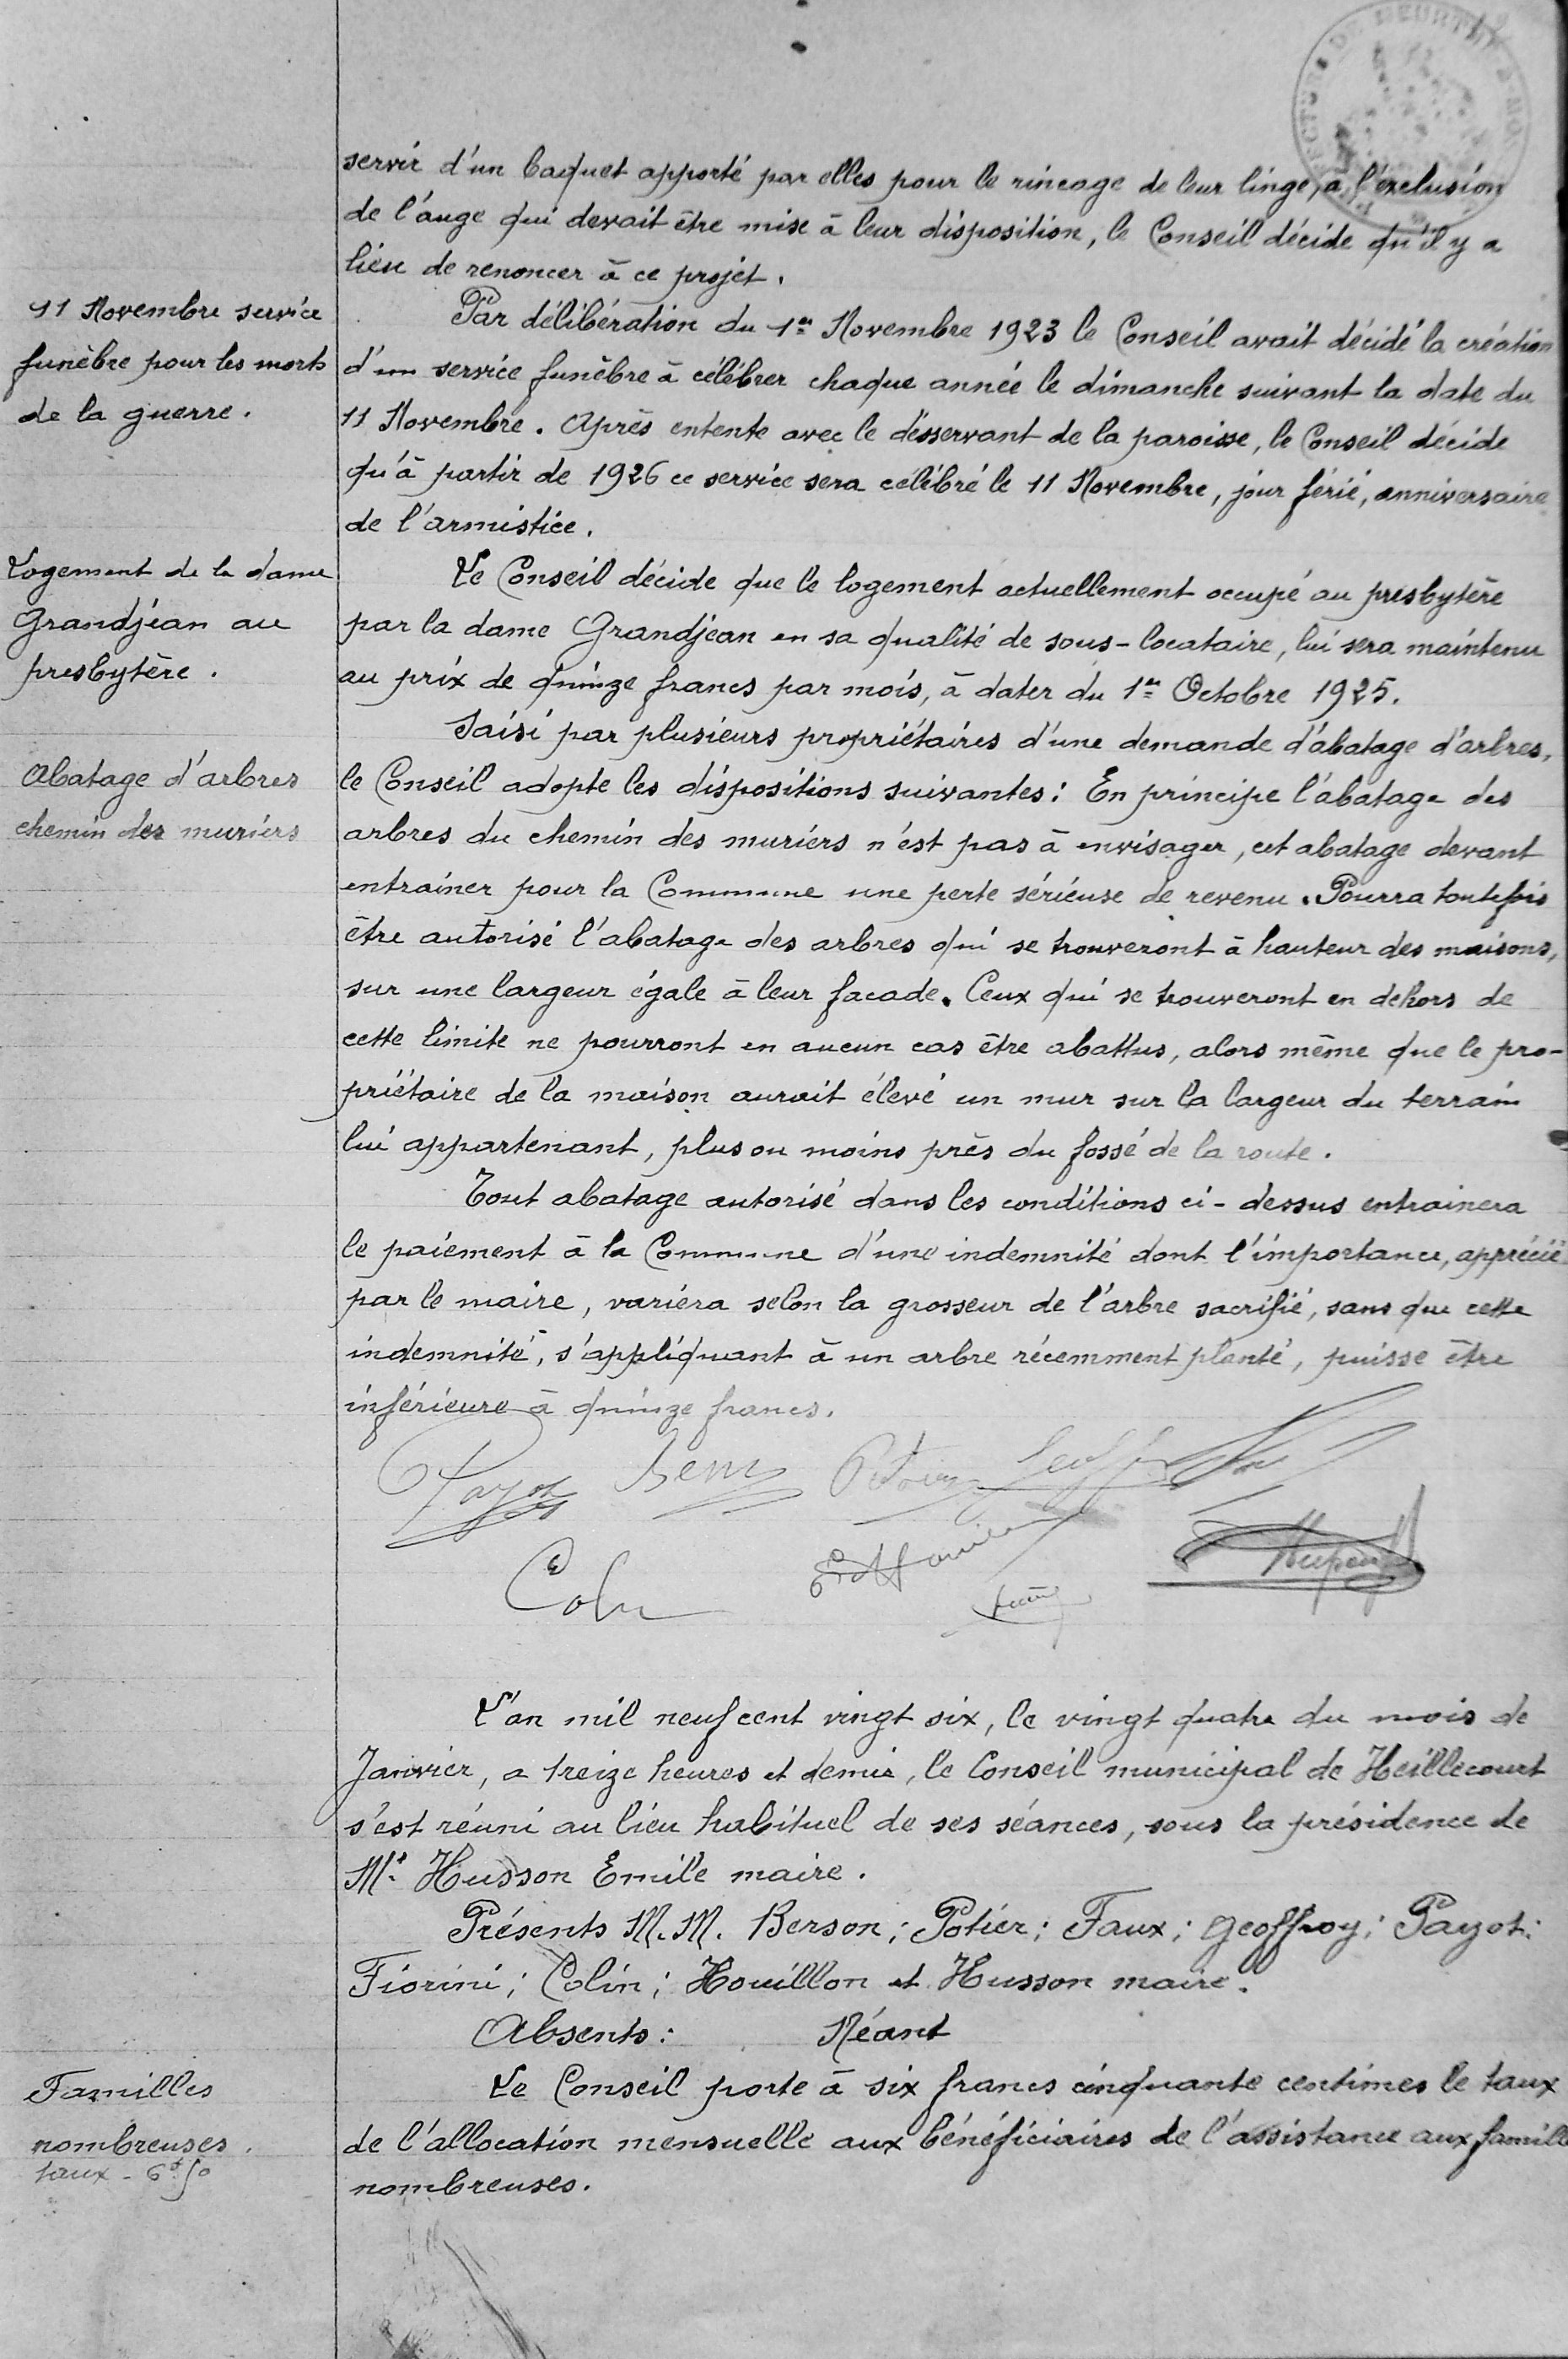 servir d'un baquet apporté par elles pour le rincage de leur linge, à l'exclusion
de l'auge qui devait être mise à leur disposition, le Conseil décide qu'il y a
lieu de renoncer à ce projet.
11 Novembre service
funèbre pour les morts
de la guerre.
Par délibération du 1er Novembre 1923 le Conseil avait décidé la création
d'un service funèbre à célébrer chaque année le dimanche suivant la date du
11 Novembre. Après entente avec le desservant de la paroisse, le Conseil décide
qu'à partir de 1926 ce service sera célébré le 11 Novembre, jour férié, anniversaire
de l'armistice.
Logement de la dame
Grandjean au
presbytère.
Le Conseil décide que le logement actuellement occupé au presbytère
par la dame Grandjean en sa qualité de sous-locataire, lui sera maintenu
au prix de quinze francs par mois, à dater du 1er Octobre 1925.
Abatage d'arbres
chemin des muriers
Saisi par plusieurs propriétaires d'une demande d'abatage d'arbres,
le Conseil adopte les dispositions suivantes: En principe l'abatage des
arbres du chemin des muriers n'est pas à envisager, cet abatage devant
entrainer pour la Commune une perte sérieuse de revenu. Pourra toutefois
être autorisé l'abatage des arbres qui se trouveront à hauteur des maisons,
sur une largeur égale à leur facade. Ceux qui se trouveront en dehors de
cette limite ne pourront en aucun cas être abattus, alors même que le pro-
priétaire de la maison aurait élevé un mur sur la largeur du terrain
lui appartenant, plus ou moins près du fossé de la route.
Tout abatage autorisé dans les conditions ci-dessus entrainera
le paiement à la Commune d'une indemnité dont l'importance, appréciée
par le maire, variera selon la grosseur de l'arbre sacrifié, sans que cette
indemnité, s'appliquant à un arbre récemment planté, puisse être
inférieure à quinze francs.
Payot
Colin
L'an mil neuf cent vingt six, le vingt quatre du mois de
Janvier, a treize heures et demie, le Conseil municipal de Heillecourt
s'est réuni au lieu habituel de ses séances, sous la présidence de
Mr Husson Emile maire.
Présents M.M. Berson; Potier; Faux; Geoffroy; Payot;
Fiorini; Colin; Houillon et Husson maire.
Absents: Néant
Familles
nombreuses.
taux - 6f50
Le Conseil porte à six francs cinquante centimes le taux
de l'allocation mensuelle aux bénéficiaires de l'assistance aux famille
nombreuses.